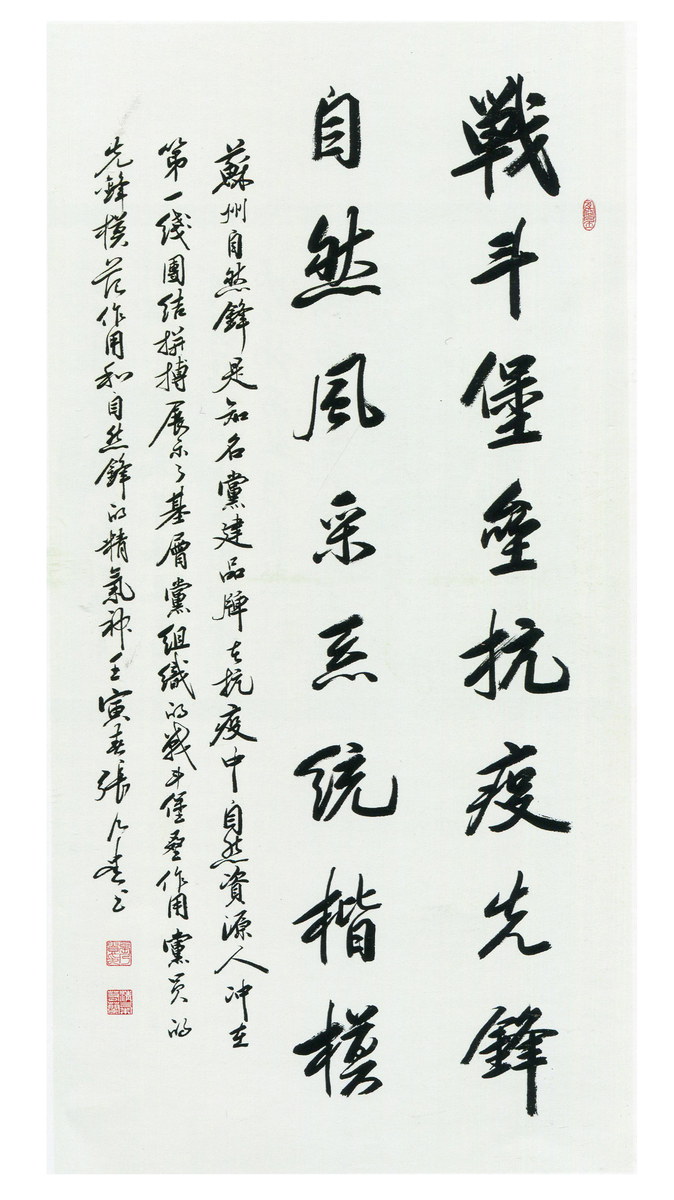 戰斗堡壘抗疫先鋒
自然風采系統楷模
蘇州自然鋒是知名黨建品牌在抗疫中自然資源人冲在
第一綫團結拼搏展示了基層黨組織的戰斗堡壘作用黨員的
先鋒模范作用和自然鋒的精氣神壬寅春張